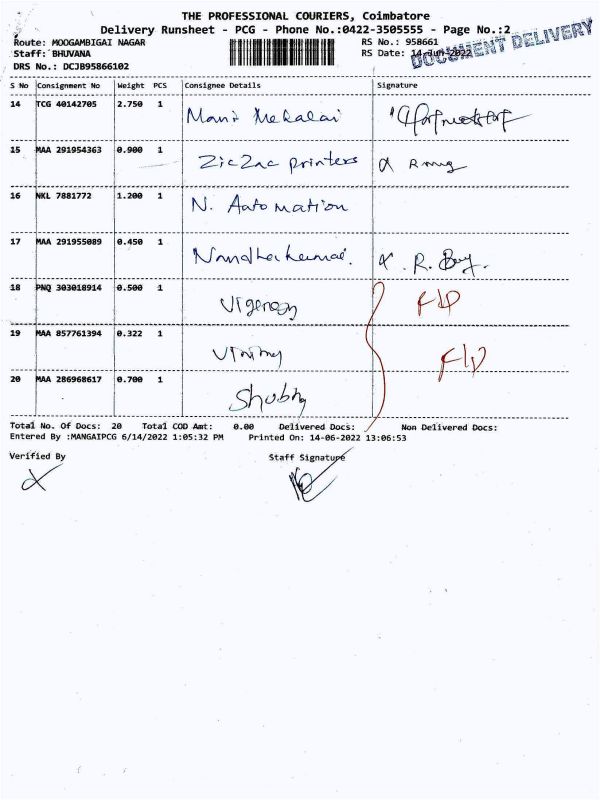 THE PROFESSIONAL COURIERS, Coimbatore
Delivery Runsheet - PCG - Phone No.:0422-3505555 - Page No.:2
Route: MOOGAMBIGAI NAGAR RS No.: 958661
Staff: BHUVANA RS Date: 14-Jun-2022
DOCUMENT DELIVERY
DRS No.: DCJB95866102
S No Consignment No Weight PCS Consignee Details Signature
14 TCG 40142705 2.750 1 Mani Mekalai
15 MAA 291954363 0.900 1 ZicZac printers
16 NKL 7881772 1.200 1 N. Automation
17 MAA 291955089 0.450 1 Nandhakumar. R.
18 PNQ 303018914 0.500 1
19 MAA 857761394 0.322 1
20 MAA 286968617 0.700 1
Total No. Of Docs: 20 Total COD Amt: 0.00 Delivered Docs: Non Delivered Docs:
Entered By :MANGAIPCG 6/14/2022 1:05:32 PM Printed On: 14-06-2022 13:06:53
Verified By Staff Signature